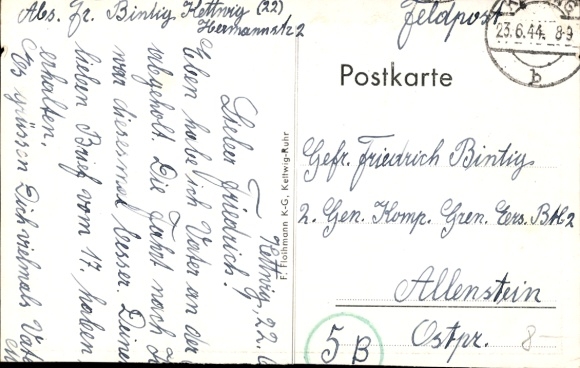 Abs. Fr. Bintig Kettwig (22)
Hermannstr 2
Feldpost
23.6.44. 8-9
b
Postkarte
Gefr. Friedrich Bintig
2. Gen. Komp. Gren. Ers. Btl 2
Allenstein
Ostpr.
8-
5 B
F. Flothmann K-G, Kettwig-Ruhr
Kettwig, 22.
Lieber Friedrich!
Eben habe ich Vater an der
abgeholt. Die Fahrt nach
war diesesmal besser. Deinen
lieben Brief vom 17. haben
erhalten.
Es grüssen Dich vielmals